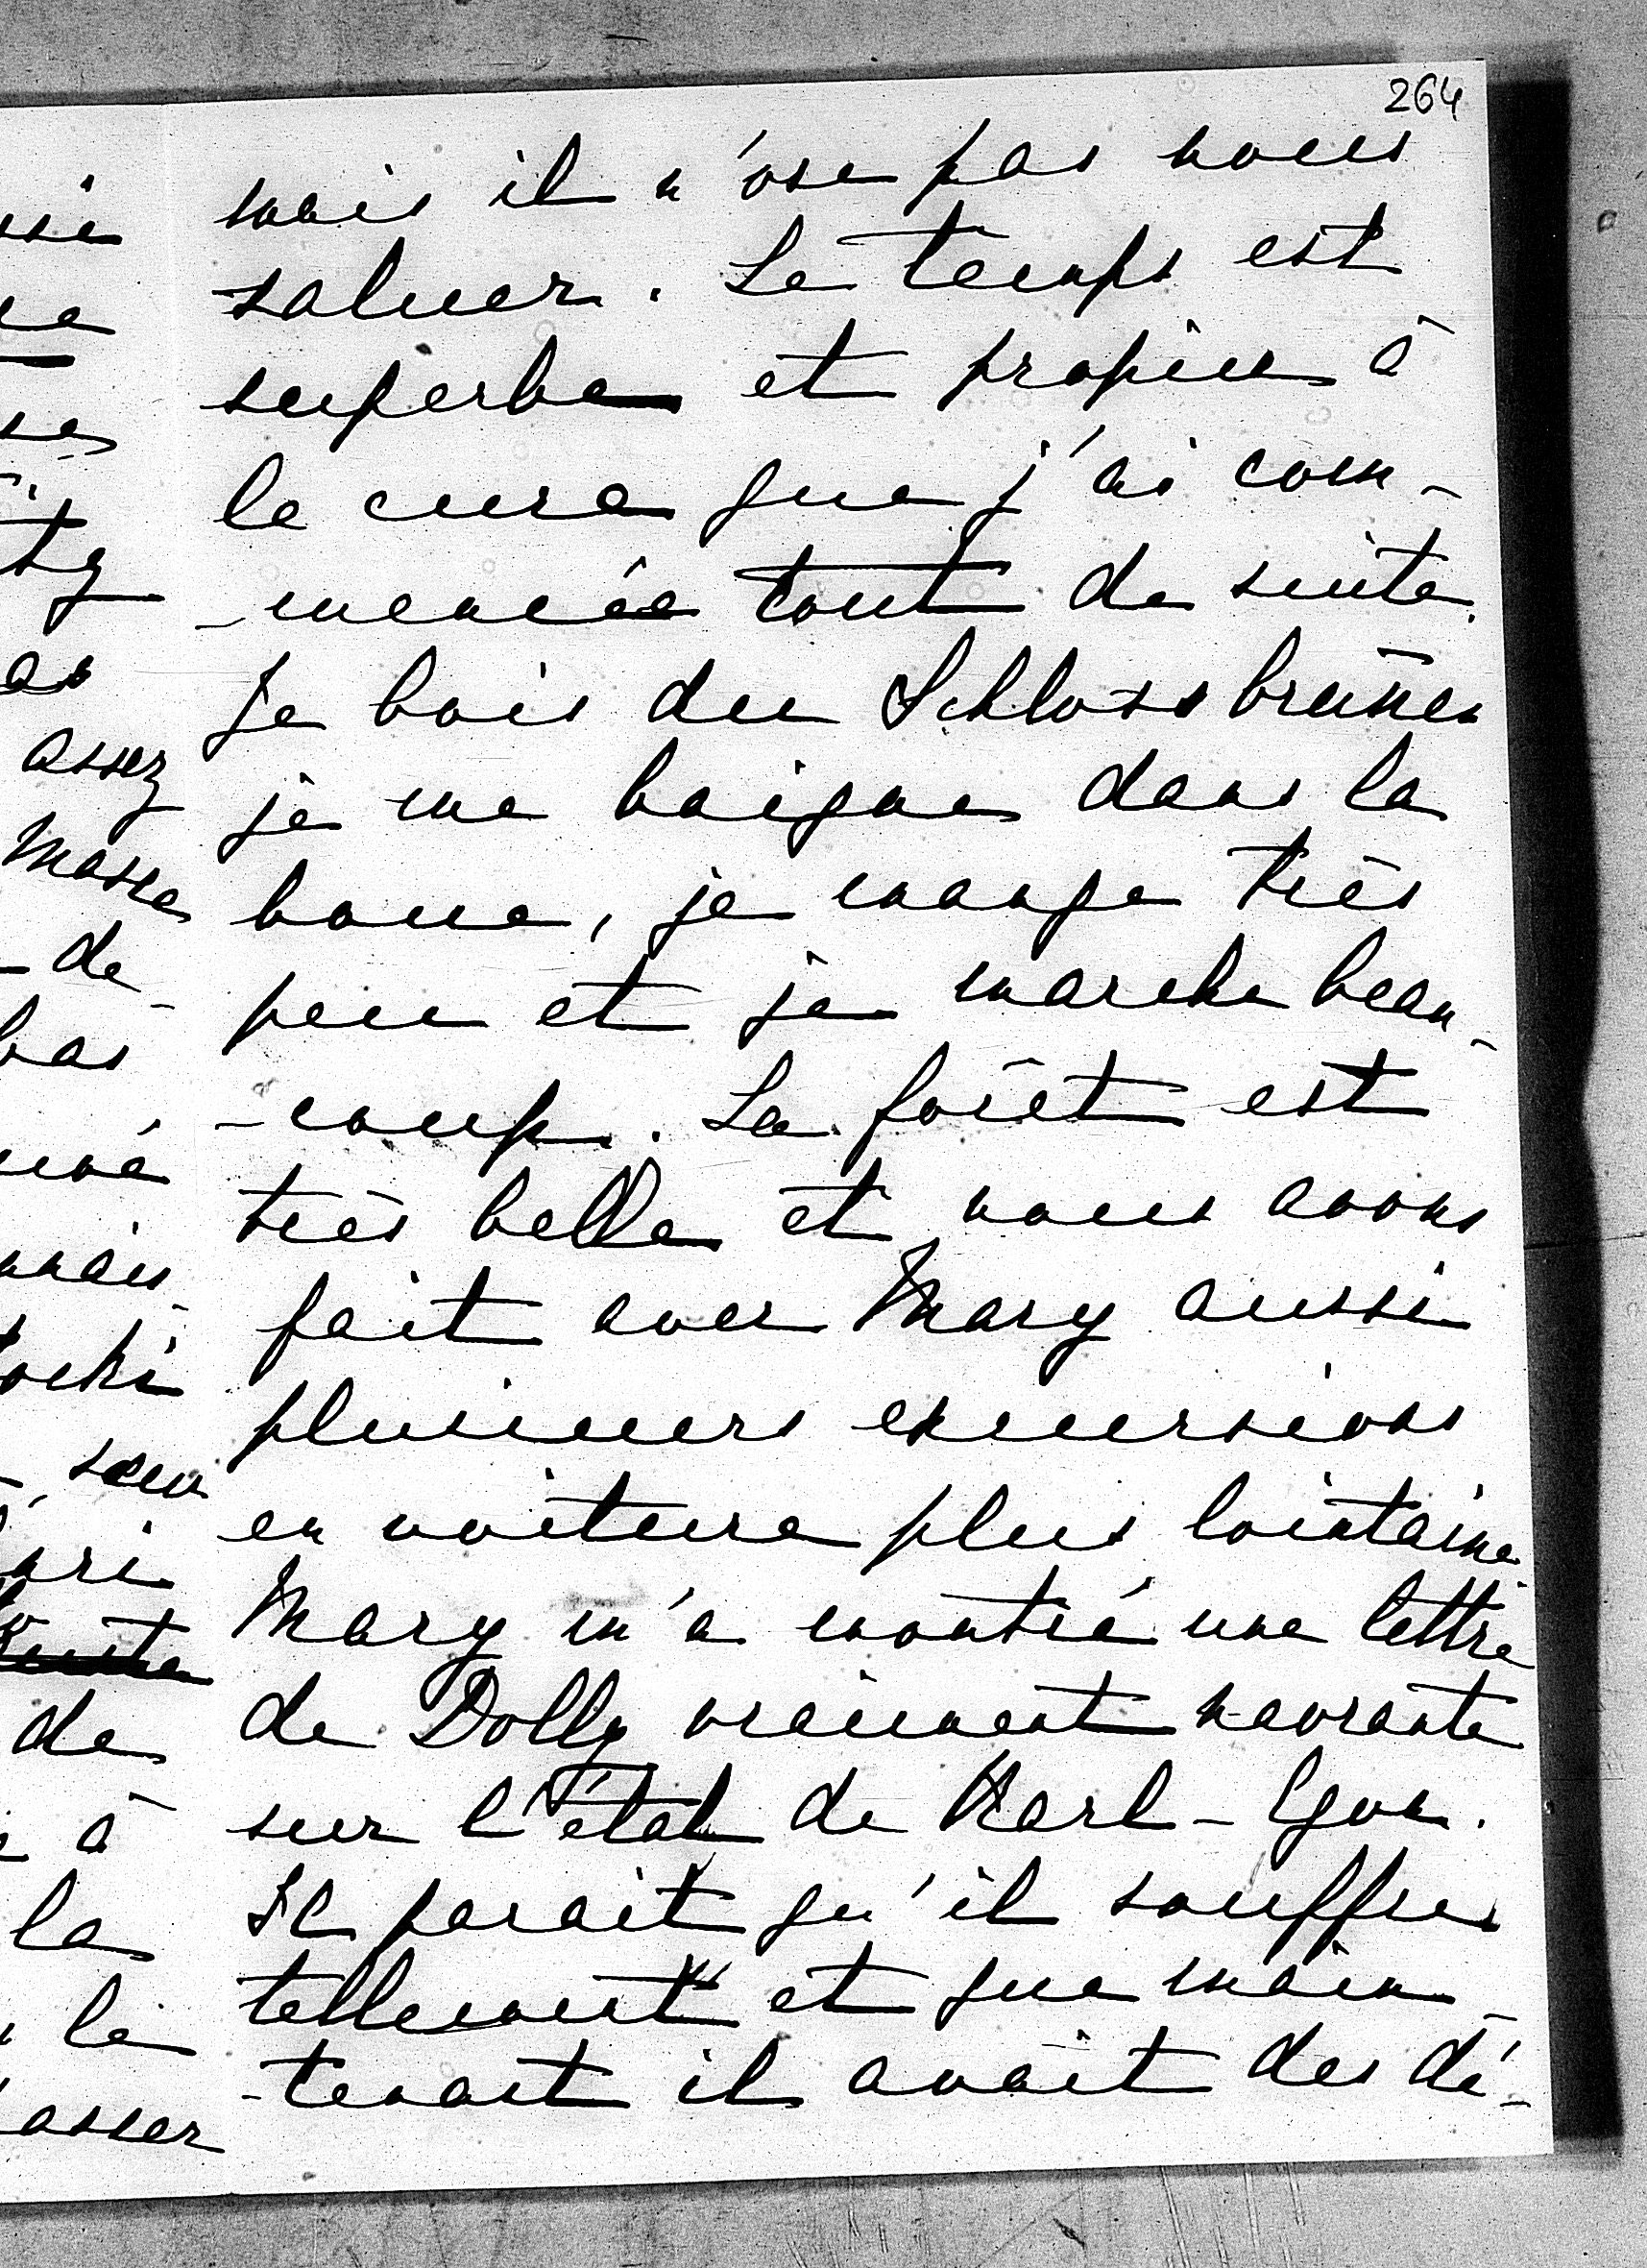 264
mais il n'ose pas nous
saluer. Le temps est
superbe et propice à
la cure que j'ai com-
-mencée tout de suite.
Je bois du Schlossbrunen
je me baigne dans la
boue, je mange très
peu et je marche beau-
-coup. La forêt est
très belle et nous avons
fait avec Mary aussi
plusieurs excursions
en voiture plus lointaine.
Mary m'a montré une lettre
de Dolly vraiment navrante
sur l'état de Karl-Egon.
Il parait qu'il souffre
tellement et que main-
-tenant il avait des dé-
assez
Masse
de
bas
de
à
la
le